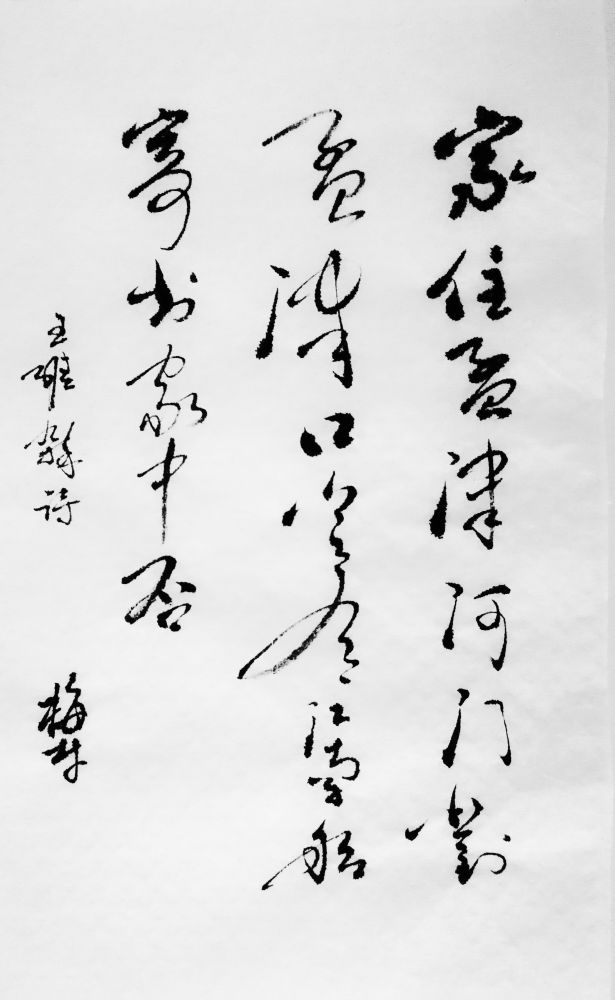 家住孟津河门對
孟津口常有江南船
寄书家中否
王維雜诗
梅村